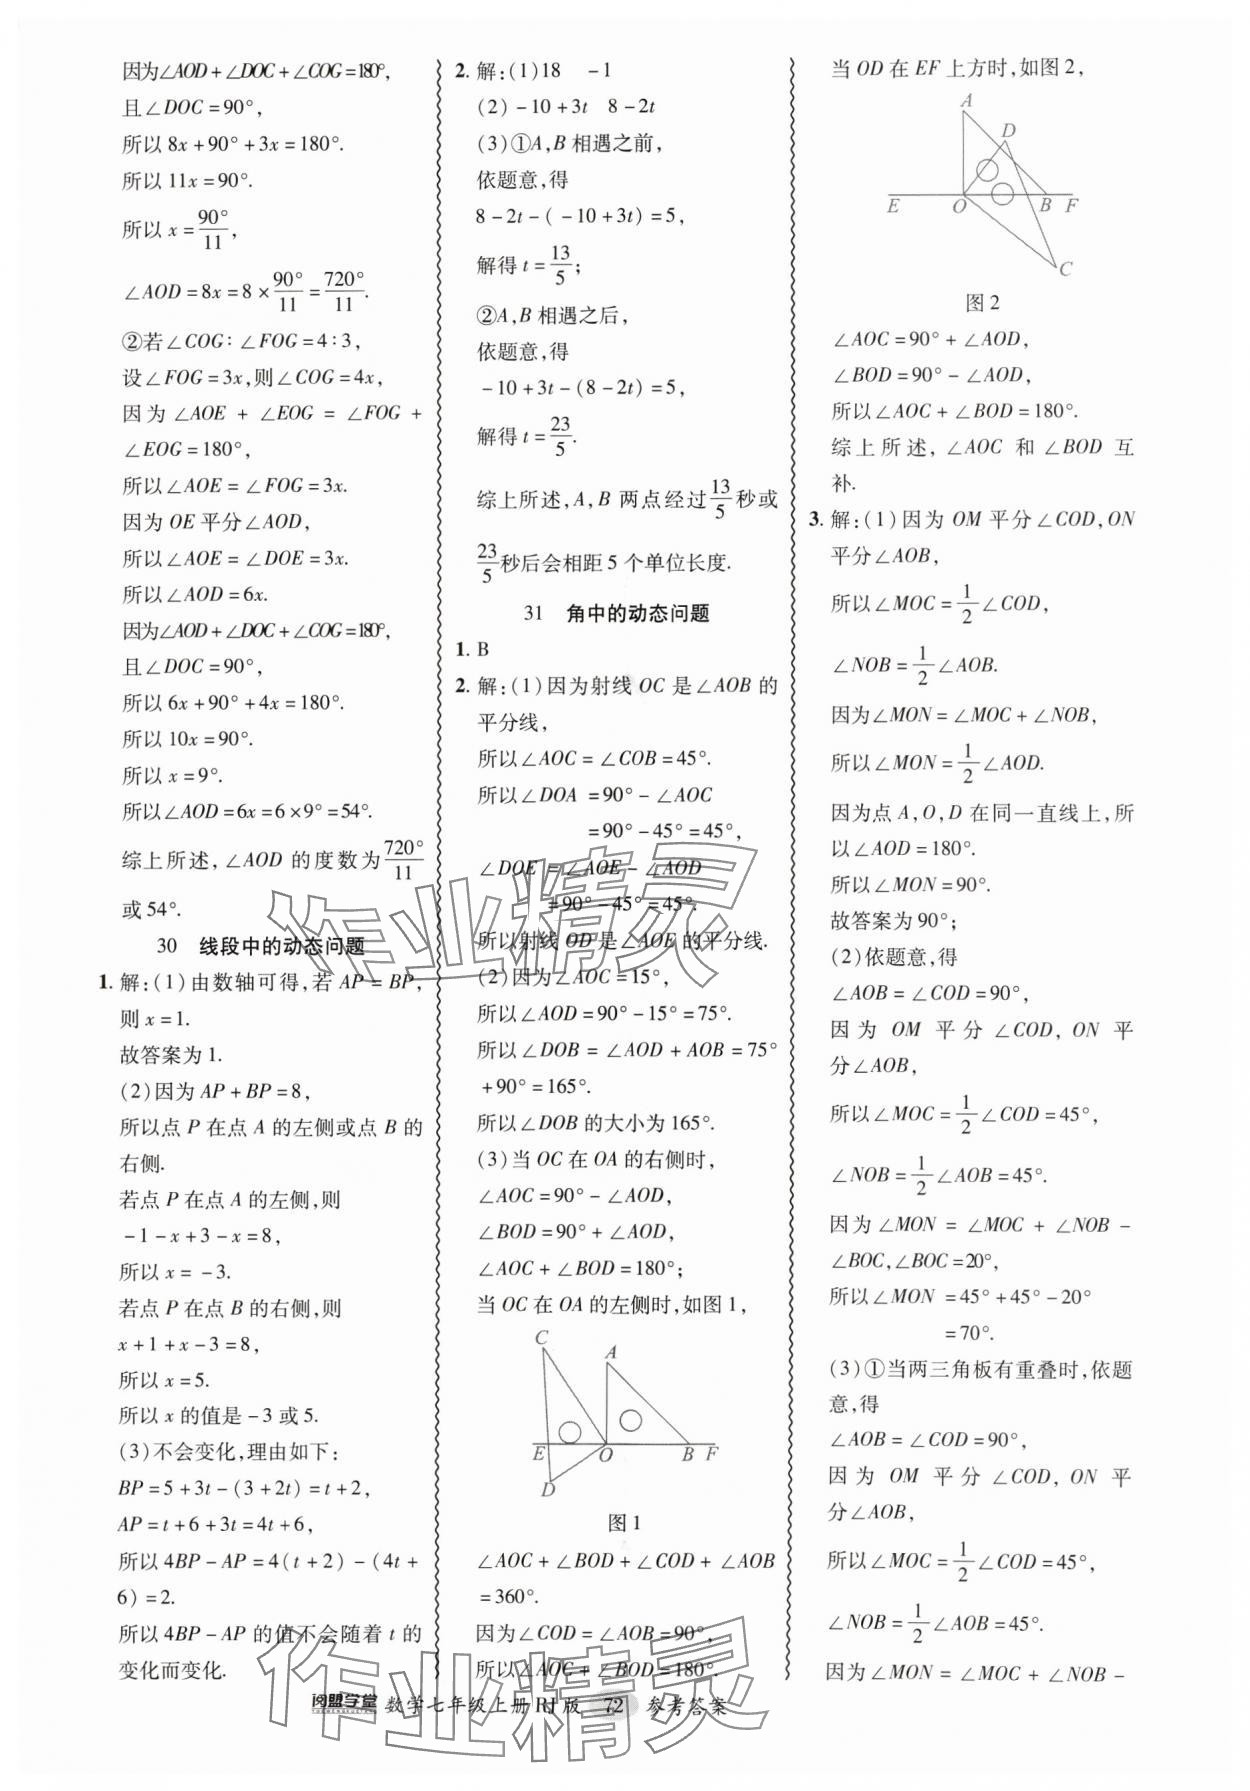 因为∠AOD+∠DOC+∠COG=180°,
且∠DOC=90°,
所以8x+90°+3x=180°.
所以11x=90°.
所以x=90°/11,
∠AOD=8x=8×90°/11=720°/11.
②若∠COG∶∠FOG=4∶3,
设∠FOG=3x,则∠COG=4x,
因为∠AOE+∠EOG=∠FOG+
∠EOG=180°,
所以∠AOE=∠FOG=3x.
因为OE平分∠AOD,
所以∠AOE=∠DOE=3x.
所以∠AOD=6x.
因为∠AOD+∠DOC+∠COG=180°,
且∠DOC=90°,
所以6x+90°+4x=180°.
所以10x=90°.
所以x=9°.
所以∠AOD=6x=6×9°=54°.
综上所述,∠AOD的度数为720°/11
或54°.
30 线段中的动态问题
1.解:(1)由数轴可得,若AP=BP,
则x=1.
故答案为1.
(2)因为AP+BP=8,
所以点P在点A的左侧或点B的
右侧.
若点P在点A的左侧,则
-1-x+3-x=8,
所以x=-3.
若点P在点B的右侧,则
x+1+x-3=8,
所以x=5.
所以x的值是-3或5.
(3)不会变化,理由如下:
BP=5+3t-(3+2t)=t+2,
AP=t+6+3t=4t+6,
所以4BP-AP=4(t+2)-(4t+
6)=2.
所以4BP-AP的值不会随着t的
变化而变化.
2.解:(1)18 -1
(2)-10+3t 8-2t
(3)①A,B相遇之前,
依题意,得
8-2t-(-10+3t)=5,
解得t=13/5;
②A,B相遇之后,
依题意,得
-10+3t-(8-2t)=5,
解得t=23/5.
综上所述,A,B两点经过13/5秒或
23/5秒后会相距5个单位长度.
31 角中的动态问题
1.B
2.解:(1)因为射线OC是∠AOB的
平分线,
所以∠AOC=∠COB=45°.
所以∠DOA=90°-∠AOC
=90°-45°=45°,
∠DOE=∠AOE-∠AOD
=90°-45°=45°.
所以射线OD是∠AOE的平分线.
(2)因为∠AOC=15°,
所以∠AOD=90°-15°=75°.
所以∠DOB=∠AOD+AOB=75°
+90°=165°.
所以∠DOB的大小为165°.
(3)当OC在OA的右侧时,
∠AOC=90°-∠AOD,
∠BOD=90°+∠AOD,
∠AOC+∠BOD=180°;
当OC在OA的左侧时,如图1,
C
A
E
O
B
F
D
图1
∠AOC+∠BOD+∠COD+∠AOB
=360°.
因为∠COD=∠AOB=90°,
所以∠AOC+∠BOD=180°.
当OD在EF上方时,如图2,
A
D
E
O
B
F
C
图2
∠AOC=90°+∠AOD,
∠BOD=90°-∠AOD,
所以∠AOC+∠BOD=180°.
综上所述,∠AOC和∠BOD互
补.
3.解:(1)因为OM平分∠COD,ON
平分∠AOB,
所以∠MOC=1/2∠COD,
∠NOB=1/2∠AOB.
因为∠MON=∠MOC+∠NOB,
所以∠MON=1/2∠AOD.
因为点A,O,D在同一直线上,所
以∠AOD=180°.
所以∠MON=90°.
故答案为90°;
(2)依题意,得
∠AOB=∠COD=90°,
因为OM平分∠COD,ON平
分∠AOB,
所以∠MOC=1/2∠COD=45°,
∠NOB=1/2∠AOB=45°.
因为∠MON=∠MOC+∠NOB-
∠BOC,∠BOC=20°,
所以∠MON=45°+45°-20°
=70°.
(3)①当两三角板有重叠时,依题
意,得
∠AOB=∠COD=90°,
因为OM平分∠COD,ON平
分∠AOB,
所以∠MOC=1/2∠COD=45°,
∠NOB=1/2∠AOB=45°.
因为∠MON=∠MOC+∠NOB-
阅盟学堂 数学七年级上册RJ版 72 参考答案
作业精灵
作业精灵